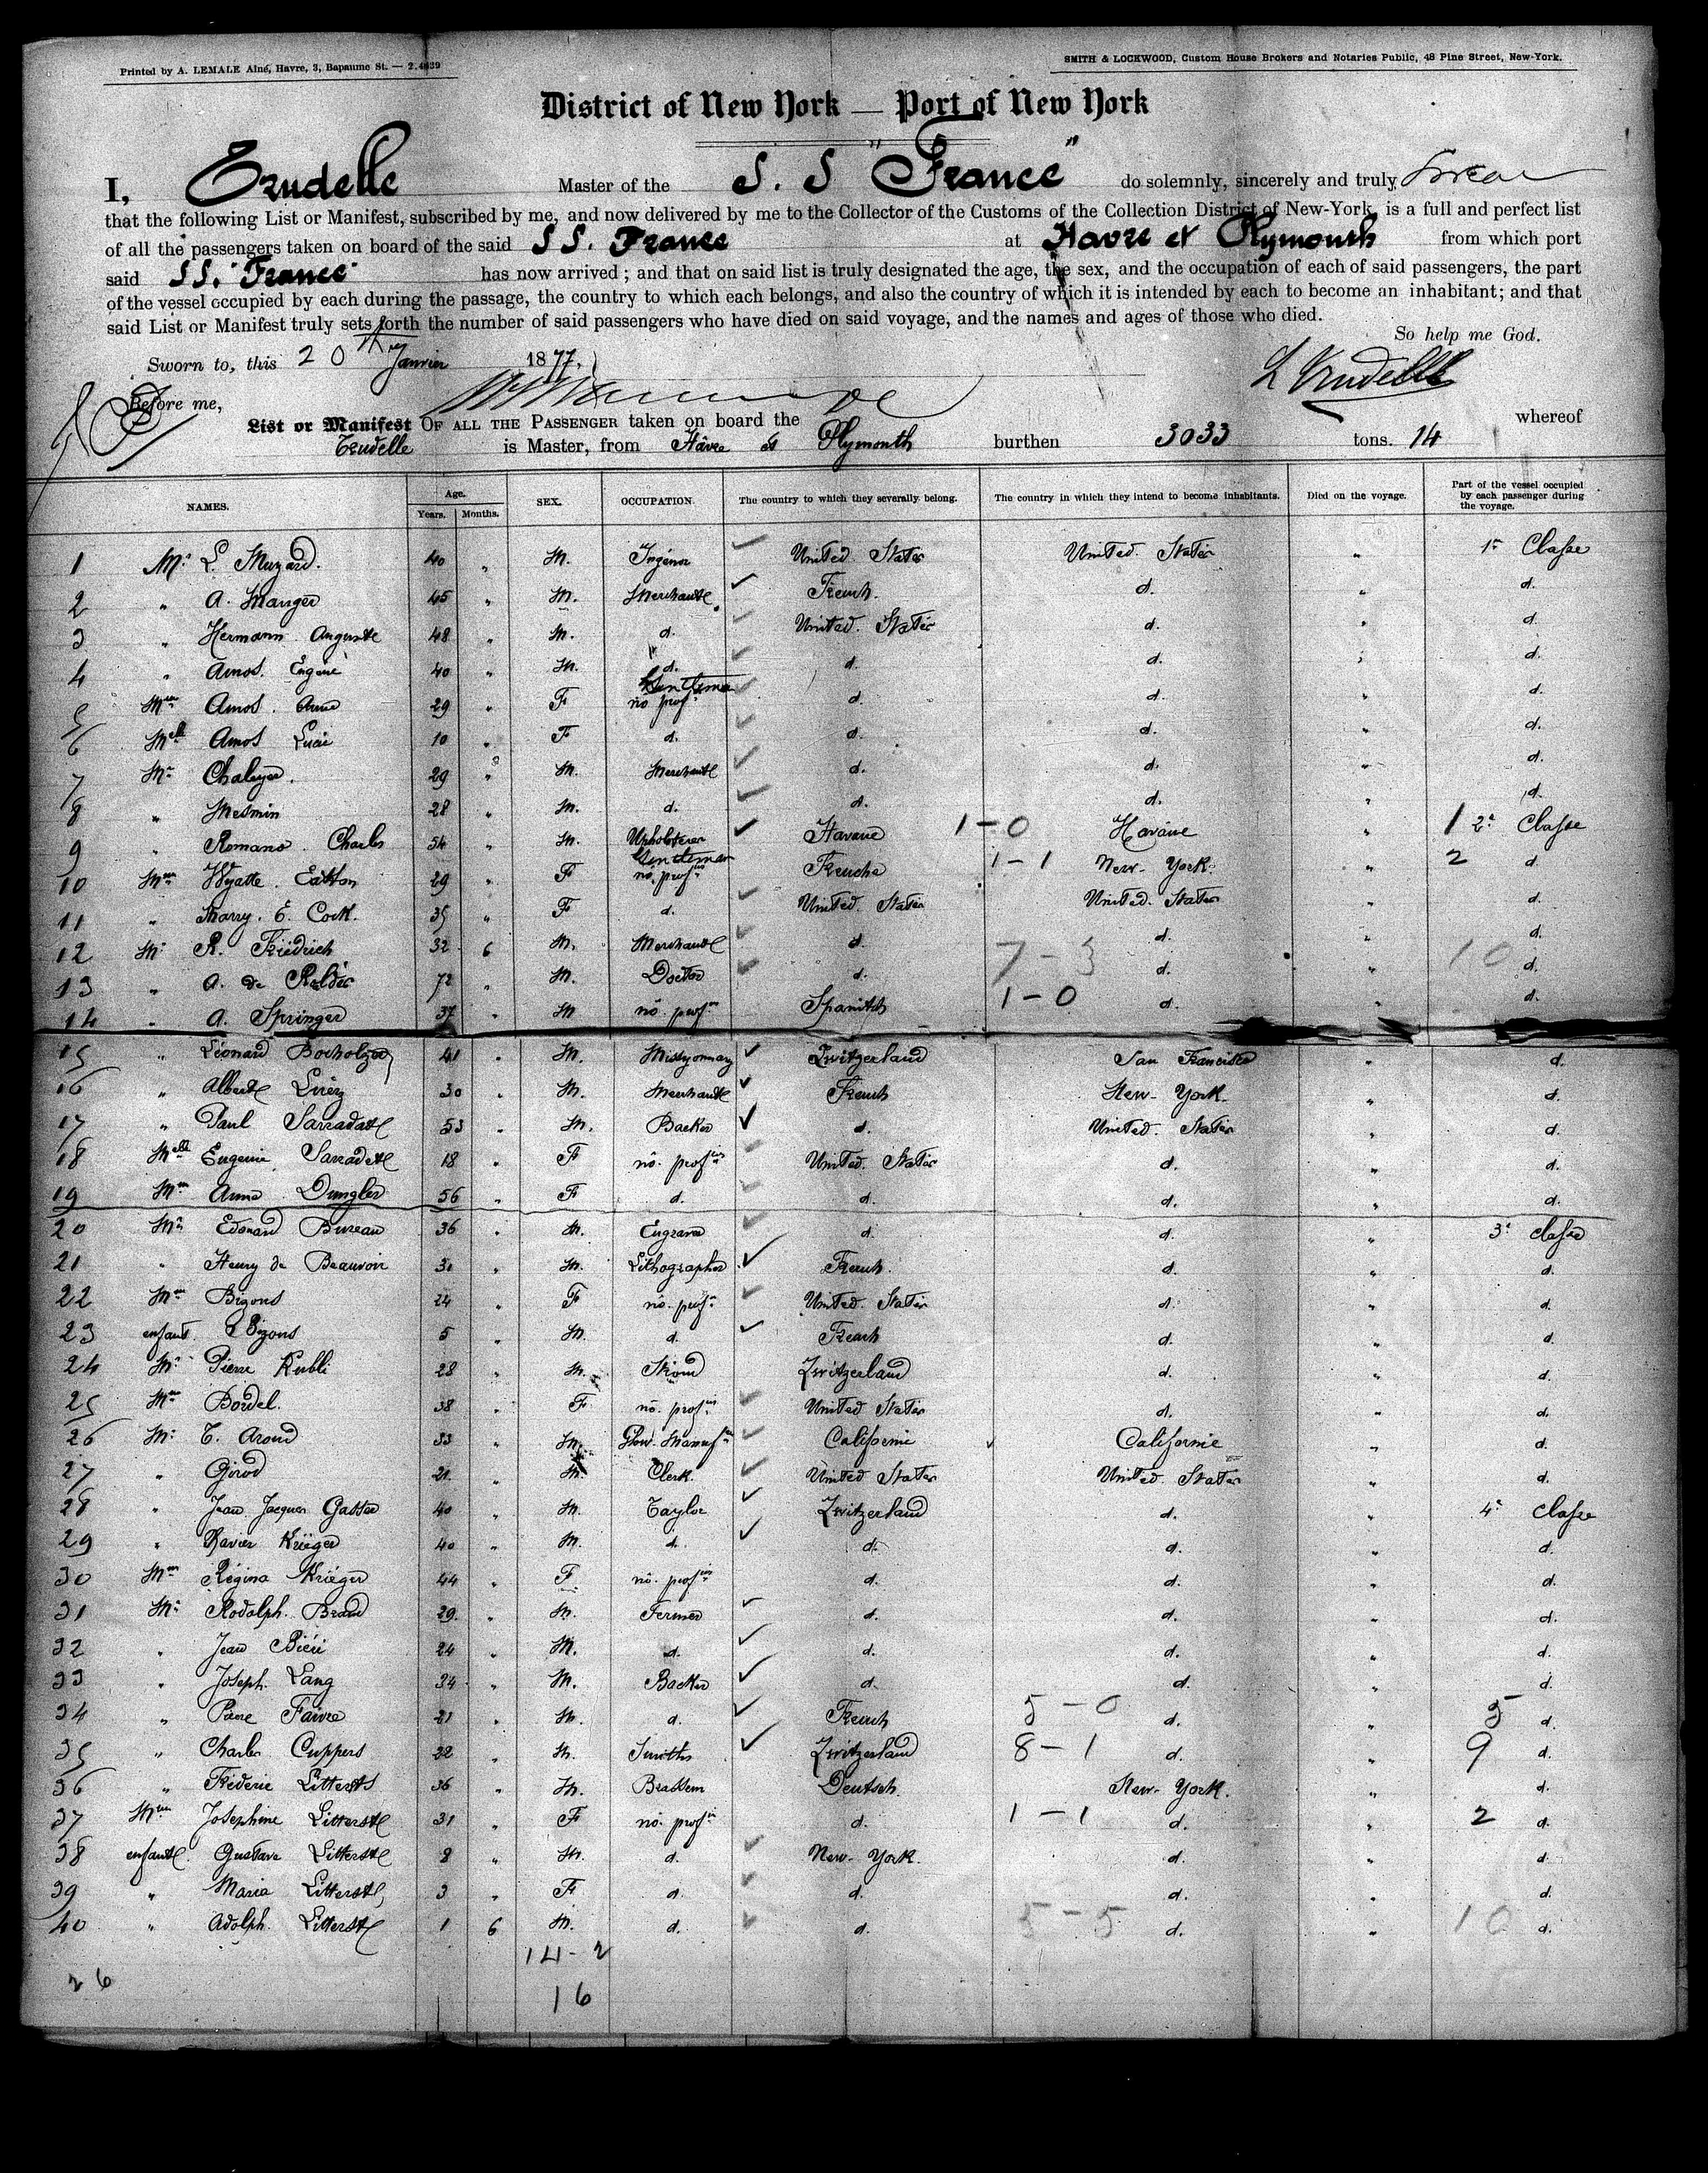 Printed by A. LEMALE Aîné, Havre, 3, Bapaume St. — 2.4639
SMITH & LOCKWOOD, Custom House Brokers and Notaries Public, 48 Pine Street, New-York.
District of New York — Port of New York
I, Trudelle Master of the S. S "France" do solemnly, sincerely and truly swear
that the following List or Manifest, subscribed by me, and now delivered by me to the Collector of the Customs of the Collection District of New-York, is a full and perfect list
of all the passengers taken on board of the said SS. France at Havre et Plymouth from which port
said SS. "France" has now arrived; and that on said list is truly designated the age, the sex, and the occupation of each of said passengers, the part
of the vessel occupied by each during the passage, the country to which each belongs, and also the country of which it is intended by each to become an inhabitant; and that
said List or Manifest truly sets forth the number of said passengers who have died on said voyage, and the names and ages of those who died.
So help me God.
Sworn to, this 20th Janvier 1877.
L Trudelle
Before me,
List or Manifest OF ALL THE PASSENGER taken on board the whereof
Trudelle is Master, from Hâvre et Plymouth burthen 3033 tons. 14
NAMES. Age. Years. Months. SEX. OCCUPATION. The country to which they severally belong. The country in which they intend to become inhabitants. Died on the voyage. Part of the vessel occupied by each passenger during the voyage.
1 Mr L. Muzard. 40 " M. Ingénor United States United States " 1e Classe
2 " A. Manger 45 " M. Merchante French. d. " d.
3 " Hermann Auguste 48 " M. d. United States d. " d.
4 " Amos. Eugène 40 " M. d. d. d. " d.
Gentleman
5 Mme Amos. Anna 29 " F no profon d. d. " d.
6 Melle Amos Lucie 10 " F d. d. d. " d.
7 Mr Chaleyer. 29 " M. Merchante d. d. " d.
8 " Mesmin 28 " M. d. d. d. " d.
9 " Romano. Charles 54 " M. Upholsterer Havane 1-0 Havane " 1 2e Classe
Gentleman
10 Mme Wyatte. Eatton 29 " F no. profon Frenche 1-1 New-York. " 2 d.
11 " Marry. E. Cock. 35 " F d. United States United States " d.
12 Mr R. Friedrich 32 6 M. Merchante d. d. " d.
13 " A. de 72 " M. Doctor d. 7-3 d. " 10 d.
14 " A. Springer 37 " M no. profon Spanitsh 1-0 d. " d.
15 " Léonard 41 " M. Missyonnary Zwitzerland San Francisco " d.
16 " Alberte 30 " M. Merchante French New-York. " d.
17 " Paul Sarradatte 53 " M. Backer d. United States " d.
18 Melle Eugenie Sarradette 18 " F no. profon United States d. " d.
19 Mme Anna Dungler 56 " F d. d. d. " d.
20 Mr Edouard Bureau 36 " M. Engraver d. d. " 3e Classe
21 " Henry de Beauvoir 31 " M. Lithographer French. d. " d.
22 Mme Bigons 24 " F no. profon United States d. " d.
23 enfant. Bigons 5 " M. d. French d. " d.
24 Mr Pierre Kubli 28 " M. Zwitzerland d. " d.
25 Mme Bordel. 38 " F no. profon United States d. " d.
26 Mr T. Aroud 33 " M. Californie Californie " d.
27 " Girod 21. " M. Clerk. United States United States " d.
28 " Jean Jacques Gasser 40 " M. Taylor Zwitzerland d. " 4e Classe
29 " Xavier Krieger 40 " M. d. d. d. " d.
30 Mme Régina Krieger 44 " F no. profon d. d. " d.
31 Mr Rodolph. Brand 29. " M. Fermer d. d. " d.
32 " Jean Biéri 24 " M. d. d. d. " d.
33 " Joseph. Lang 34 " M. Backer d. d. " d.
34 " Pierre Faivre 21 " M. d. French 5-0 d. " 5 d.
35 " Charles Cuppers 22 " M. Smiths Zwitzerland 8-1 d. " 9 d.
36 " Fréderic Litterste 36 " M. Deutsch. New-York. " d.
37 Mme Josephine Litterste 31 " F no. profon d. 1-1 d. " 2 d.
38 enfante. Gustave Litterste 8 " M. d. New-York. d. " d.
39 " Maria Litterste 3 " F d. d. d. " d.
40 " Adolph. Litterste 1 6 M. d. d. 5-5 d. " 10 d.
14-2
26
16